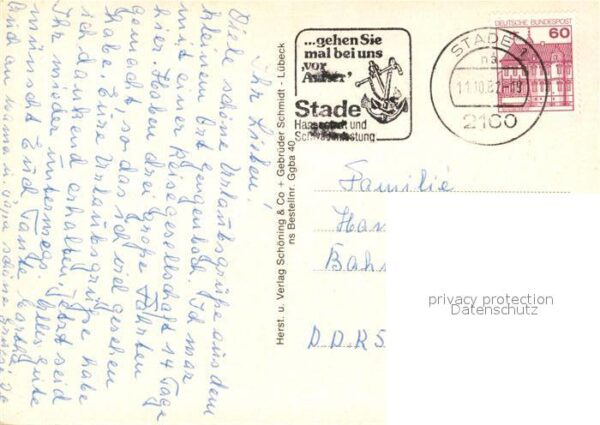 Ihr Lieben!
Viele schöne Urlaubsgrüße aus dem
kleinen Ort Gengenbach. Ich war
mit einer Reisegesellschaft 14 Tage
hier. Haben drei große Fahrten
gemacht, so das ich viel gesehen
habe. Eure Urlaubsgrüße habe
ich dankend erhalten. Jetzt seid
Ihr wieder unterwegs. Alles gute
wünscht Euch Tante
Auch an Mama u. Papa schöne Grüße
Herst. u. Verlag Schöning & Co + Gebrüder Schmidt - Lübeck
ns Bestellnr. Ggba 40
...gehen Sie
mal bei uns
'vor
Anker'
Stade
Hansestadt und
STADE 1
na
11.10.82-19
2160
DEUTSCHE BUNDESPOST
60
Familie
Han
Bahn
DDR 5
privacy protection
Datenschutz